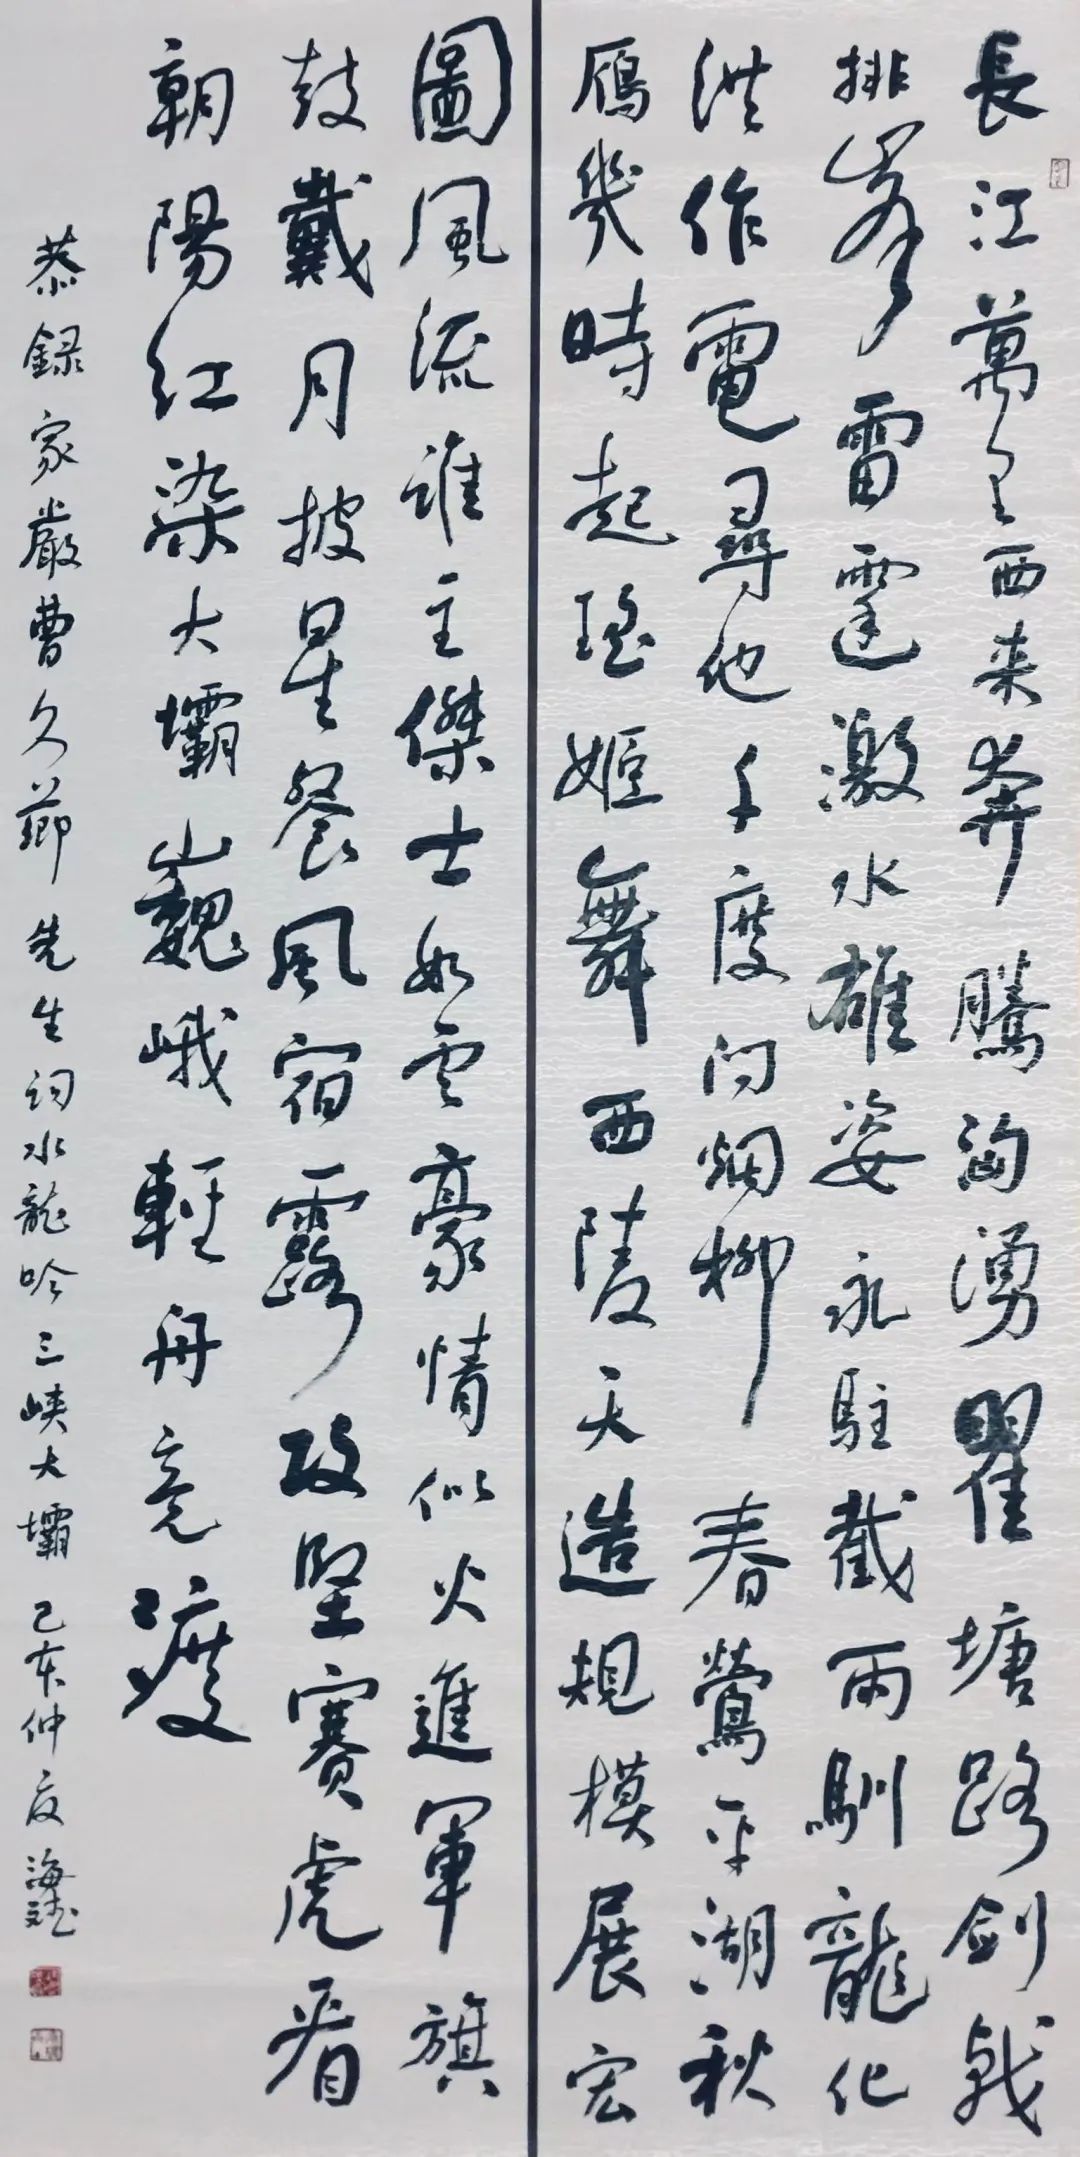 長江萬里西来奔騰洶湧瞿塘路劍戟
排峯雷霆激水雄姿永駐截兩馴龍化
洪作電尋他千度问烟柳春鶯平湖秋
鴈幾時起瑶姬舞西陵天造規模展宏
圖風流誰主傑士如雲豪情似火進軍旗
鼓戴月披星餐風宿露攻堅賽虎看
朝陽紅染大壩巍峨輕舟竞渡
恭録家嚴曹久節先生詞水龍吟三峡大壩己亥仲夏海